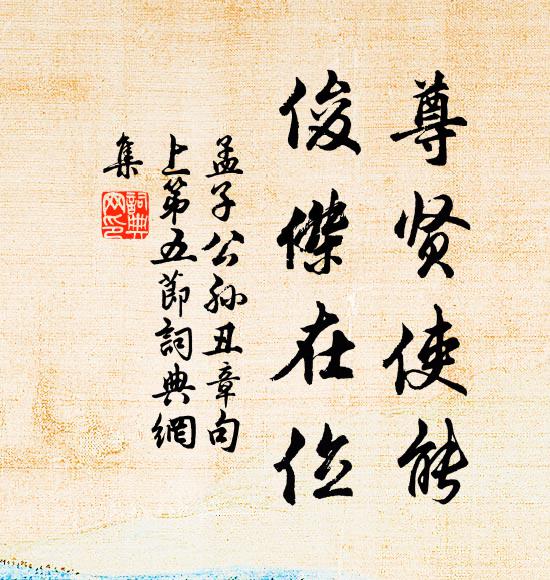 尊贤使能
俊傑在位
孟子公孙丑章句
上第五節詞典網
集
詞典網印